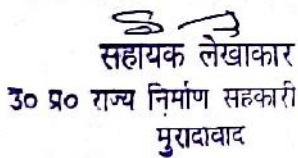 सहायक लेखाकार
उ० प्र० राज्य निर्माण सहकारी
मुरादावाद